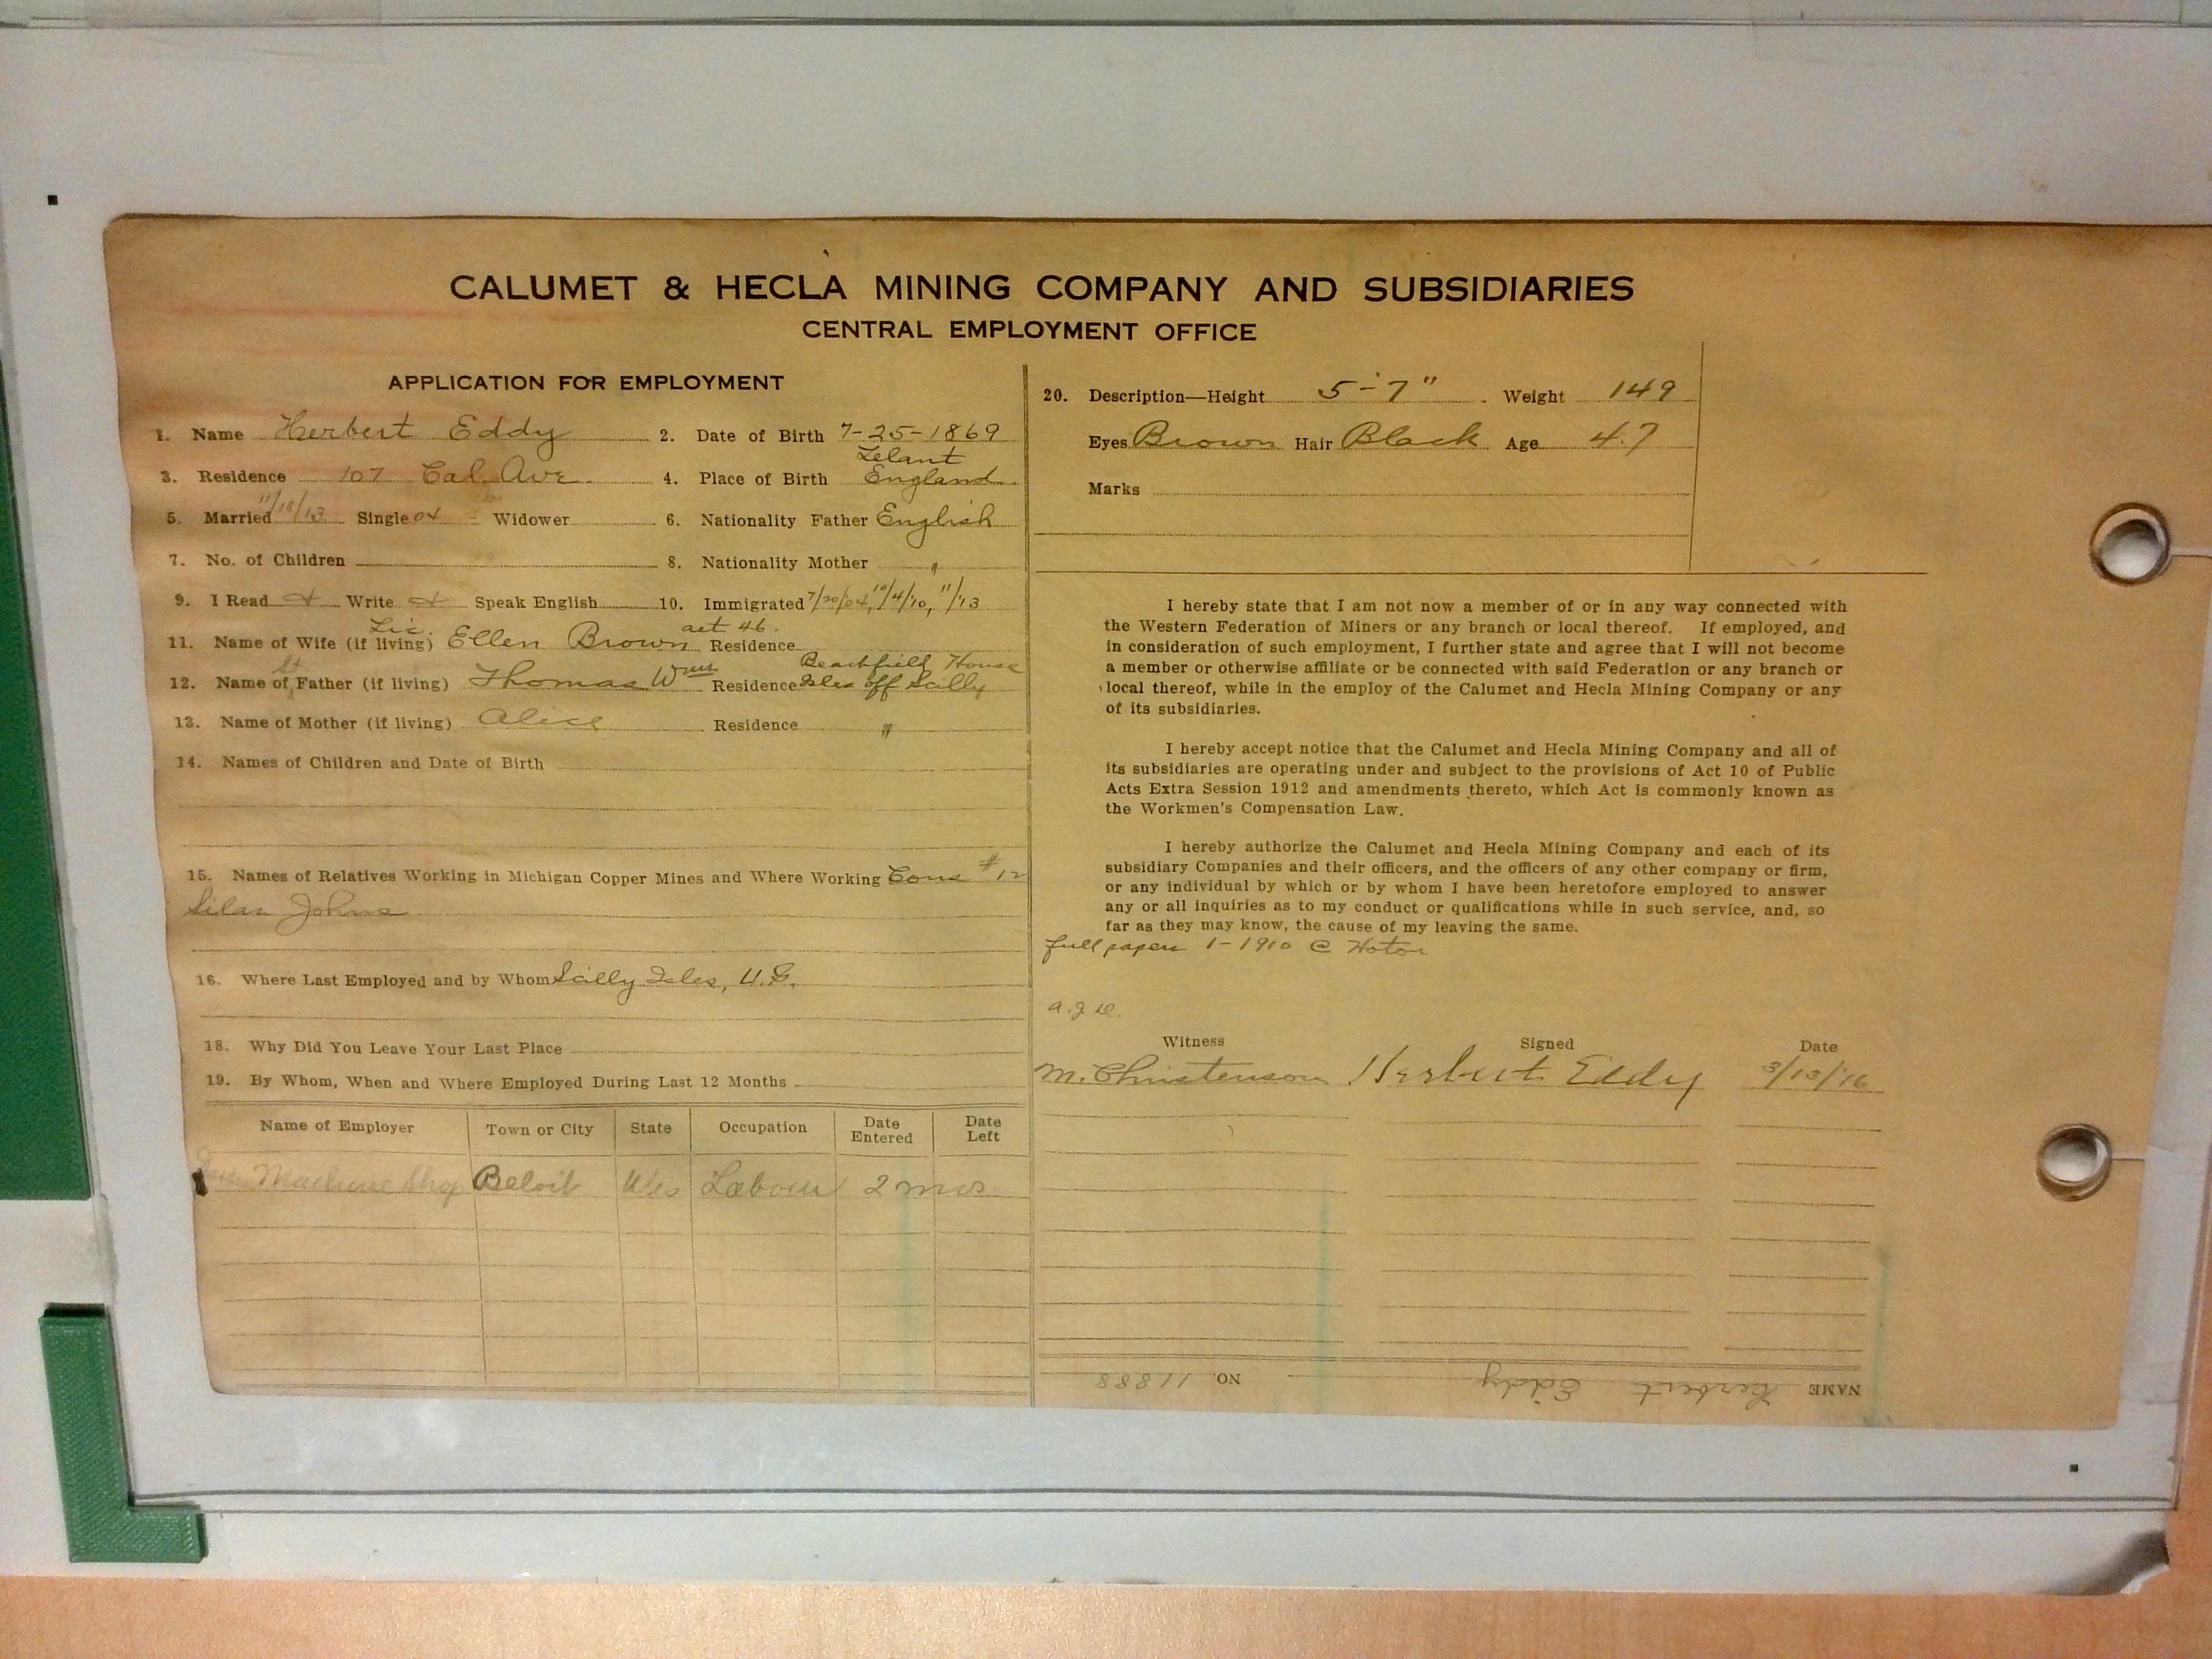 CALUMET & HECLA MINING COMPANY AND SUBSIDIARIES
CENTRAL EMPLOYMENT OFFICE
APPLICATION FOR EMPLOYMENT
1. Name Herbert Eddy 2. Date of Birth 7-25-1869
3. Residence 107 Cal. Ave. 4. Place of Birth Lelant England
5. Married 11/18/13 Single Widower 6. Nationality Father English
7. No. of Children 8. Nationality Mother "
9. I Read Write Speak English 10. Immigrated 7/20/04, 10/4/10, 11/13
11. Name of Wife (if living) Liv. Ellen Brown aet 46. Residence
12. Name of St Father (if living) Thomas Wm Residence Beachfield House Isles off Scilly
13. Name of Mother (if living) Alice Residence "
14. Names of Children and Date of Birth
15. Names of Relatives Working in Michigan Copper Mines and Where Working Cons #12
Silas Johns
16. Where Last Employed and by Whom Scilly Isles,
18. Why Did You Leave Your Last Place
19. By Whom, When and Where Employed During Last 12 Months
Name of Employer Town or City State Occupation Date Entered Date Left
Machine Shop Beloit Wis Labour 2 mos
20. Description—Height 5-7" Weight 149
Eyes Brown Hair Black Age 47
Marks
I hereby state that I am not now a member of or in any way connected with
the Western Federation of Miners or any branch or local thereof. If employed, and
in consideration of such employment, I further state and agree that I will not become
a member or otherwise affiliate or be connected with said Federation or any branch or
local thereof, while in the employ of the Calumet and Hecla Mining Company or any
of its subsidiaries.
I hereby accept notice that the Calumet and Hecla Mining Company and all of
its subsidiaries are operating under and subject to the provisions of Act 10 of Public
Acts Extra Session 1912 and amendments thereto, which Act is commonly known as
the Workmen's Compensation Law.
I hereby authorize the Calumet and Hecla Mining Company and each of its
subsidiary Companies and their officers, and the officers of any other company or firm,
or any individual by which or by whom I have been heretofore employed to answer
any or all inquiries as to my conduct or qualifications while in such service, and, so
far as they may know, the cause of my leaving the same.
full papers 1-1910 @ Hoton
Witness Signed Date
M. Christenson Herbert Eddy 3/13/16
NAME Herbert Eddy NO. 11888